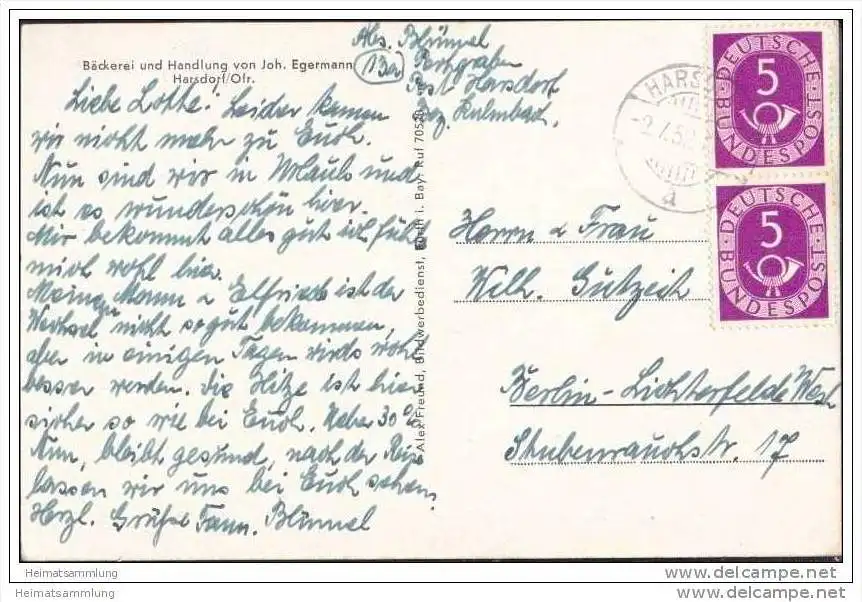 Bäckerei und Handlung von Joh. Egermann
Harsdorf/Ofr.
Abs. Blümel
13a
Post Harsdorf
Bez. Kulmbach.
Liebe Lotte! Leider kamen
wir nicht mehr zu Euch.
Nun sind wir in Urlaub und
ist es wunderschön hier.
Mir bekommt alles gut ich fühl
mich wohl hier.
Meinen Mann u Elfriede ist der
Wechsel nicht so gut bekommen,
aber in einigen Tagen wirds wohl
besser werden. Die Hitze ist hier
sicher so wie bei Euch. Ueber 30°
Nun, bleibt gesund, nach der Reise
lassen wir uns bei Euch sehen.
Herzl. Grüße Fam. Blümel
Alex Freund, Bildwerbedienst, Fürth i. Bay. Ruf 70520
Herrn u Frau
Wilh. Gutzeit
Berlin-Lichterfelde West
Stubenrauchstr. 17
HARSD
-9.7.52
a
DEUTSCHE BUNDESPOST
5
DEUTSCHE BUNDESPOST
5
Heimatsammlung
Heimatsammlung
www.delcampe.net
www.delcampe.net